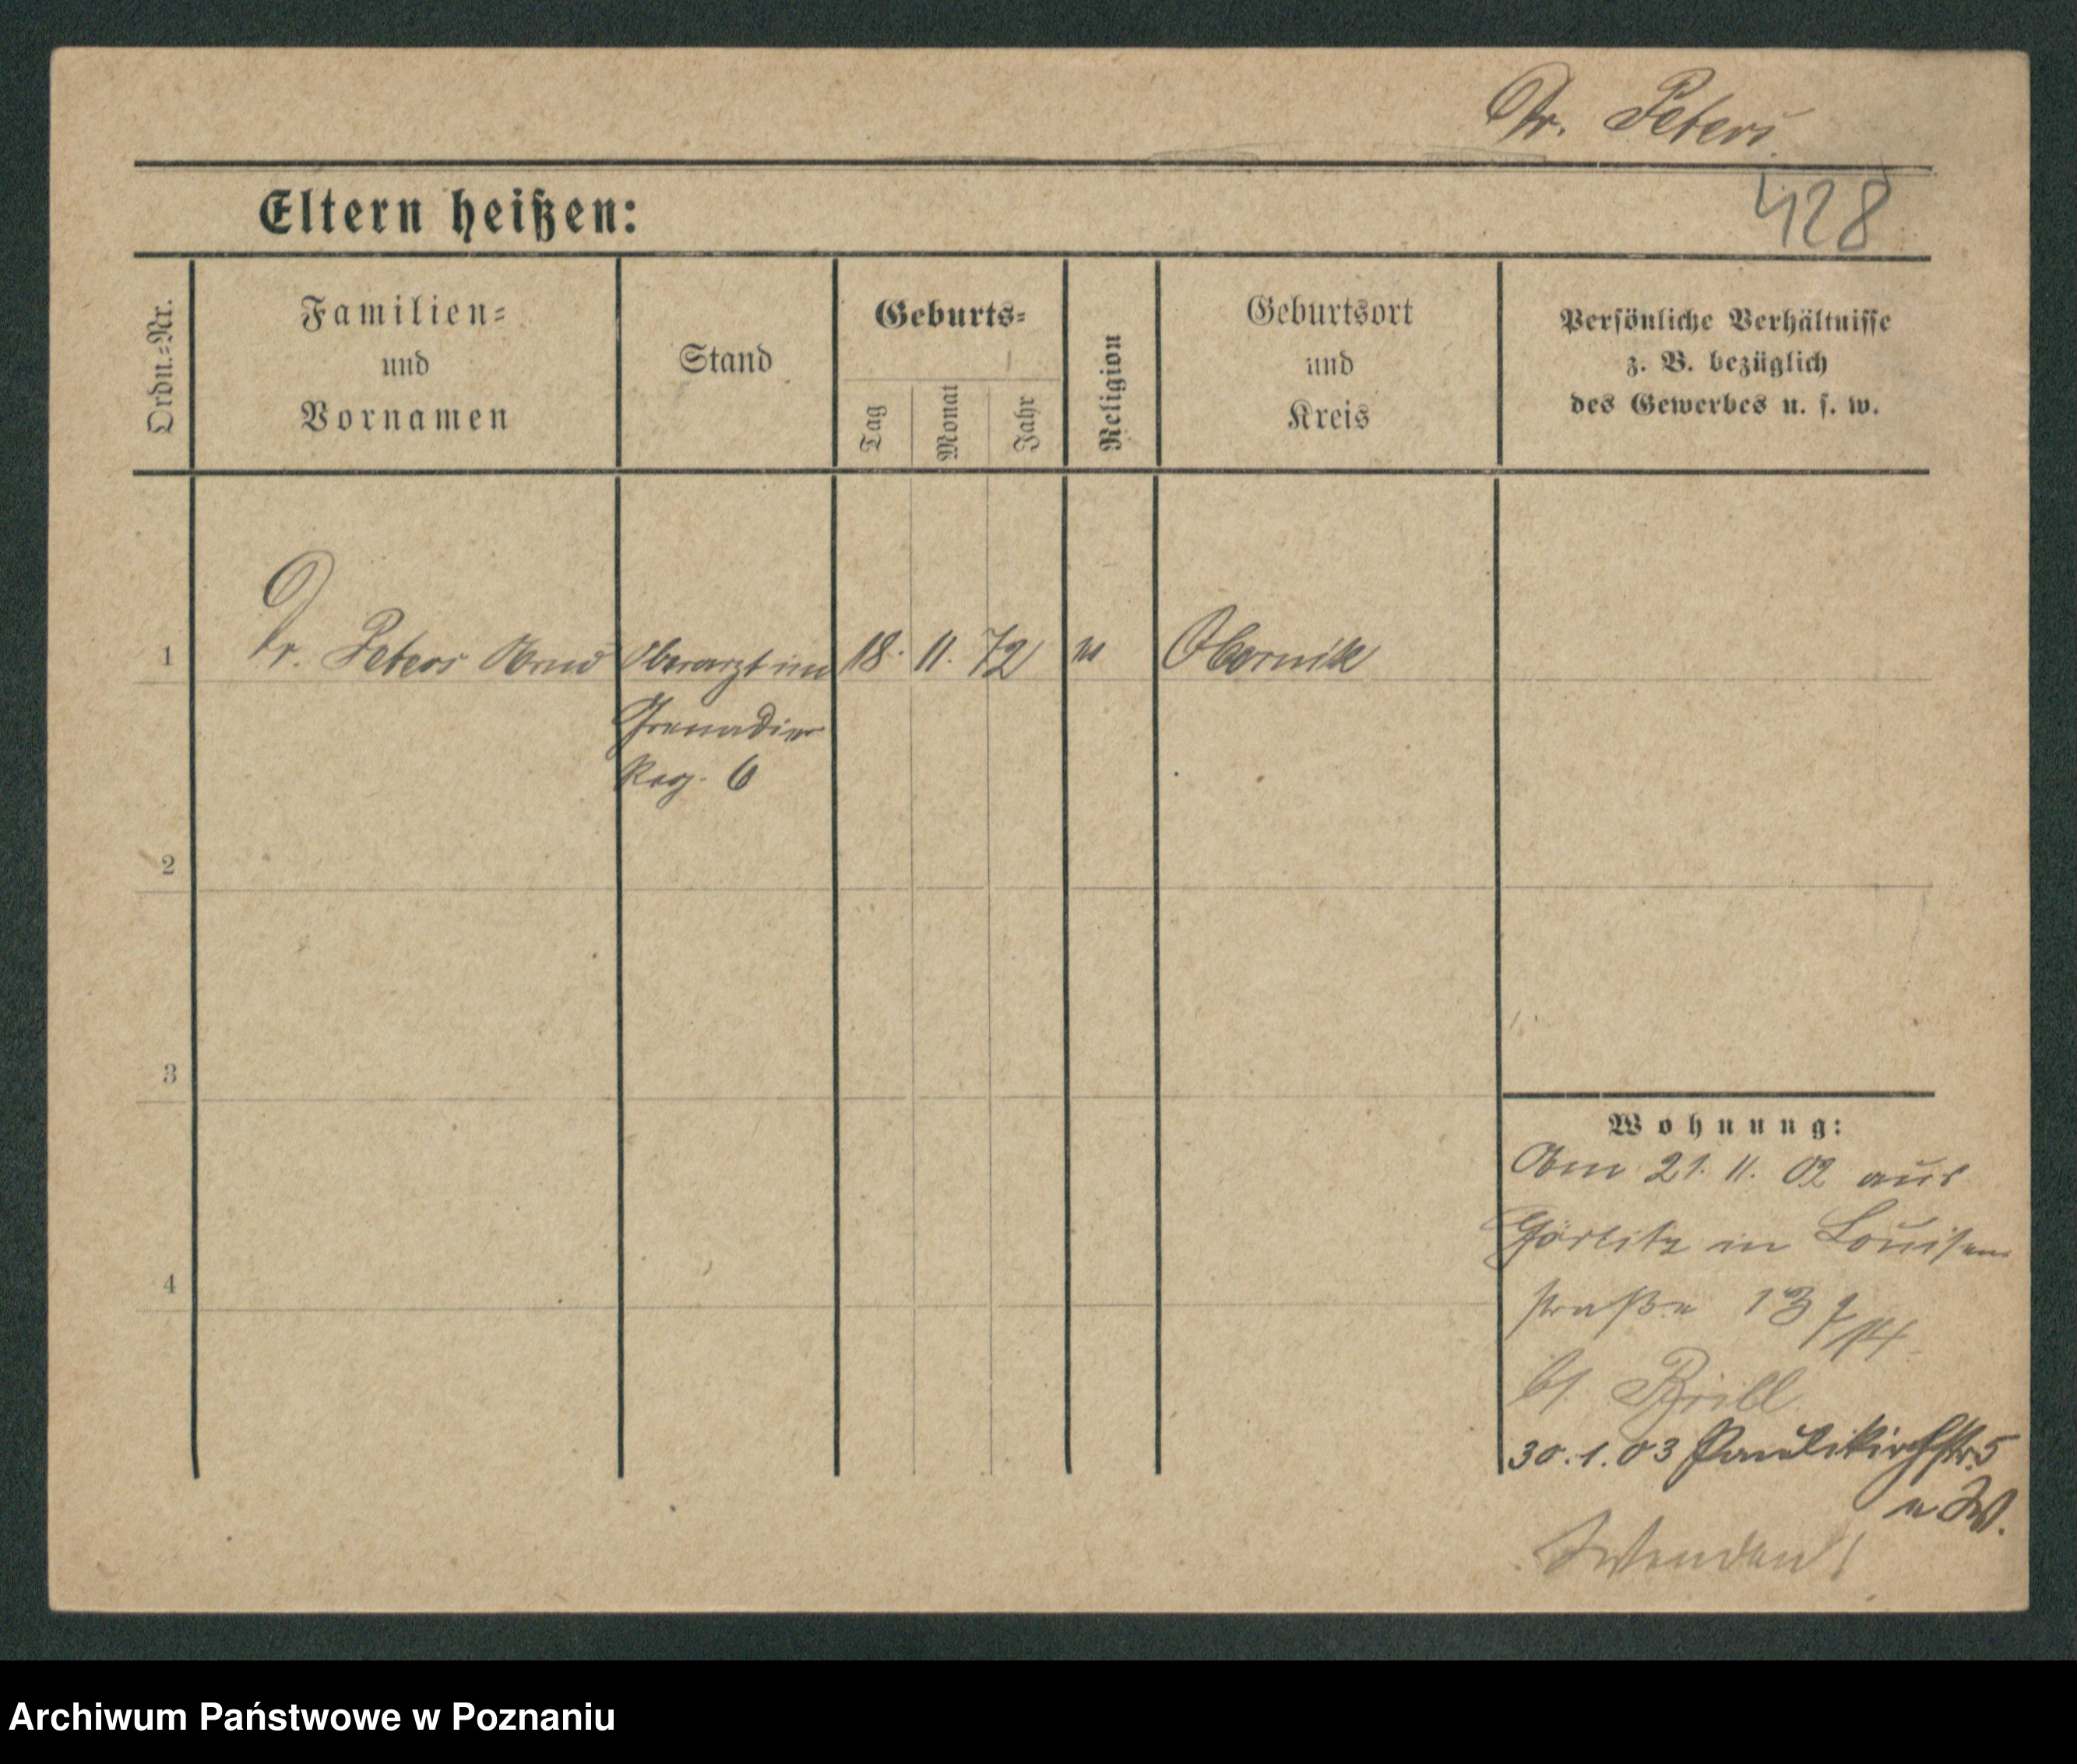 Dr. Peters
428
Eltern heißen:
Ordn.=Nr.
Familien=
und
Vornamen
Stand
Geburts=
Tag
Monat
Jahr
Religion
Geburtsort
und
Kreis
Persönliche Verhältnisse
z. B. bezüglich
des Gewerbes u. s. w.
1 Dr. Peters Arnd Oberarzt im 18. 11. 72 Obornik
Grenadier
Reg. 6
2
3
4
Wohnung:
Am 21. 11. 02 aus
Görlitz in Louisen
straße 13
bei Brill
30.1.03 Paulikirchstr. 5
Wenden!
Archiwum Państwowe w Poznaniu